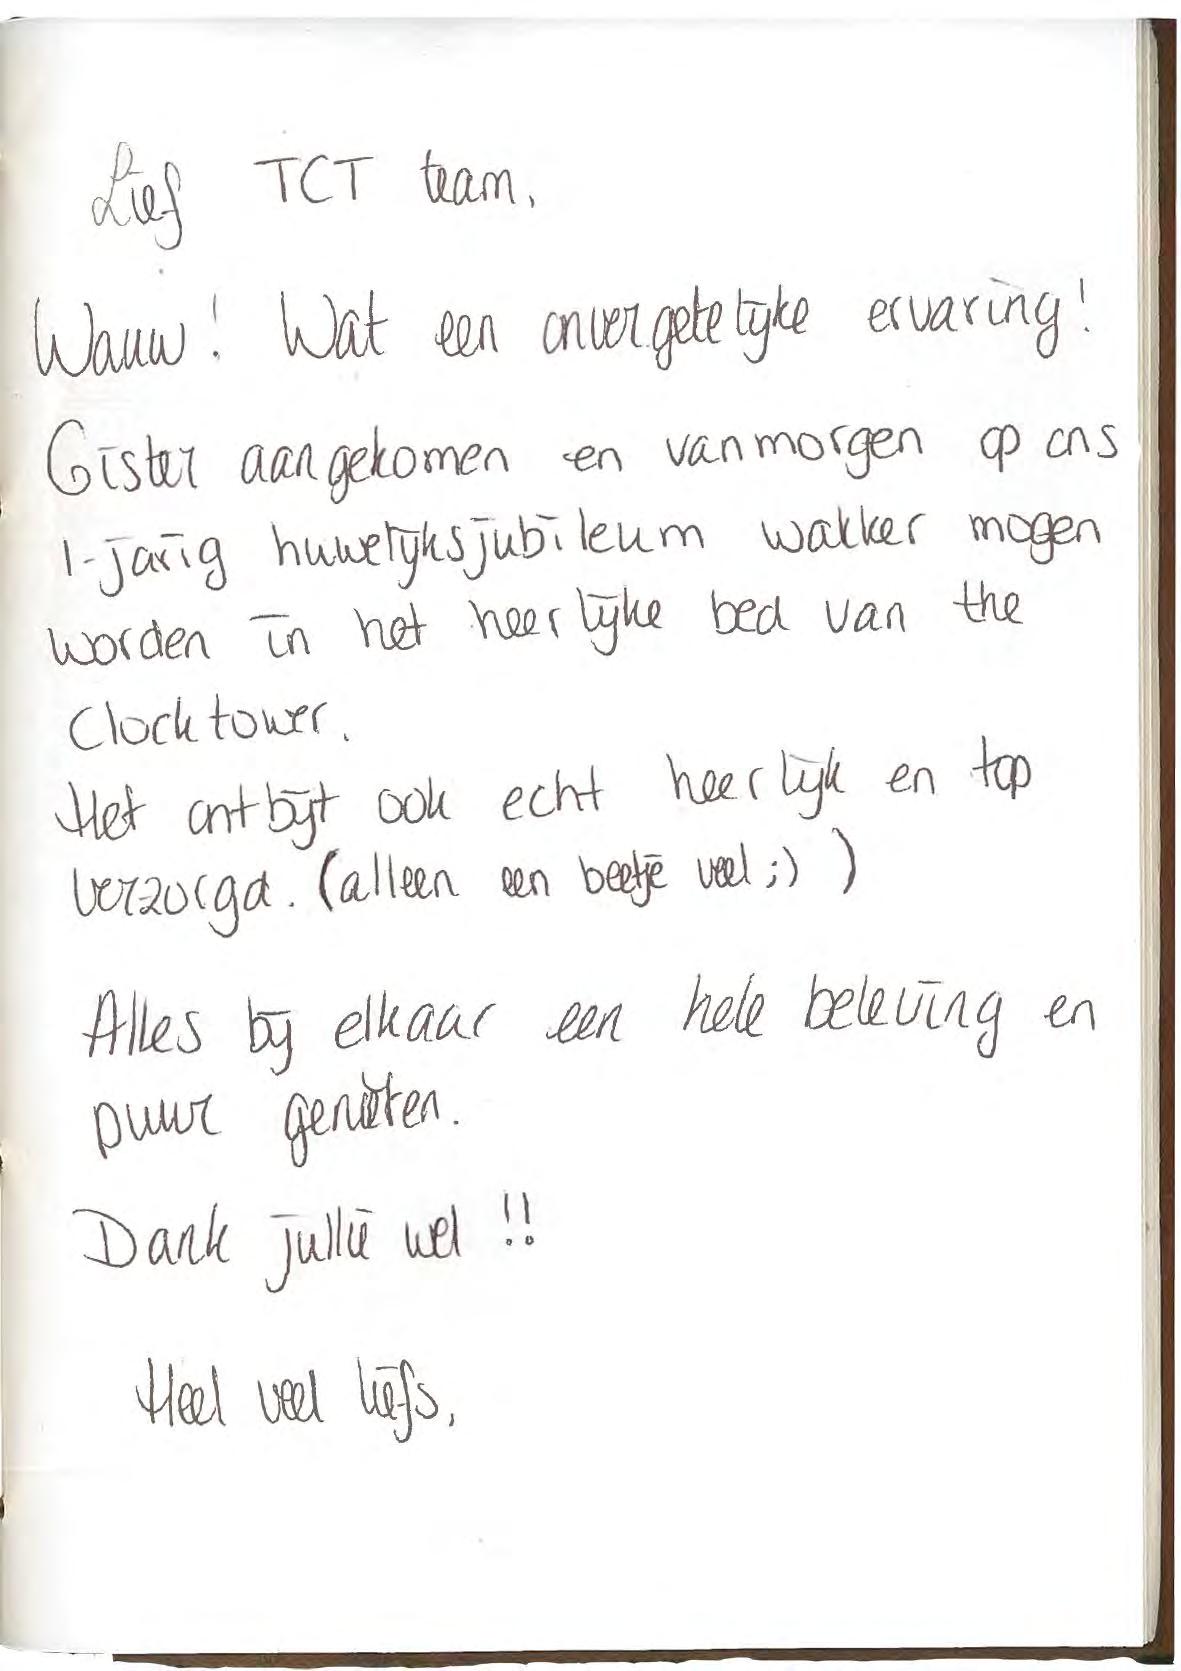 Lief TCT team,
Wauw! Wat een onvergetelijke ervaring!
Gister aangekomen en vanmorgen op ons
1-jarig huwelijksjubileum wakker mogen
worden in het heerlijke bed van the
Clocktower.
Het ontbijt ook echt heerlijk en top
verzorgd. (alleen een beetje veel ;) )
Alles bij elkaar een hele beleving en
puur genieten.
Dank jullie wel !!
Heel veel liefs,